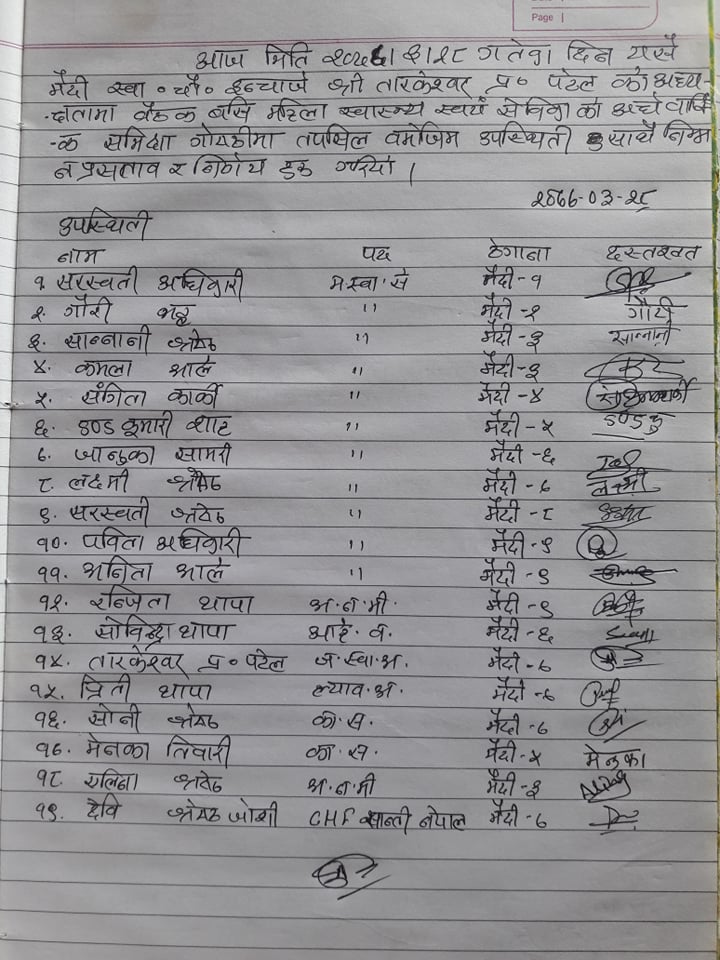 Page
आज मिति २०७७।३।२८ गतेका दिन यसै
मैदी स्वा॰ चौ॰ इन्चार्ज श्री तारकेश्वर प्र॰ पटेल को अध्य-
-क्षतामा बैठक बसि महिला स्वास्थ्य स्वयं सेविका को अर्ध वार्षि
-क समिक्षा गोष्ठीमा तपसिल बमोजिम उपस्थिती साथै निम्न
न प्रस्ताव र निर्णय गरियो।
२०७७-०३-२८
उपस्थिती
नाम पद ठेगाना दस्तखत
१. सरस्वती अधिकारी म.स्वा.से मैदी-१
२. गौरी भट्ट " मैदी-२ गौरी
३. सान्नानी श्रेष्ठ " मैदी-३ सान्नानी
४. कमला आले " मैदी-३
५. संगिता कार्की " मैदी-४
६. कुमारी शाह " मैदी-५
७. जानुका सामरी " मैदी-६
८. लक्ष्मी श्रेष्ठ " मैदी-७ लक्ष्मी
९. सरस्वती श्रेष्ठ " मैदी-८
१०. पविता अधिकारी " मैदी-९
११. अनिता आले " मैदी-९
१२. रन्जिता थापा अ.न.मी. मैदी-९
१३. गोविन्द्रा थापा अहे.व. मैदी-६
१४. तारकेश्वर प्र॰ पटेल ज.स्वा.अ. मैदी-७
१५. प्रिती थापा ल्याव.अ. मैदी-७
१६. सोनी श्रेष्ठ का.स. मैदी-७
१७. मेनका तिवारी का.स. मैदी-५ मेनका
१८. एलिना श्रेष्ठ अ.न.मी मैदी-३
१९. देवि श्रेष्ठ जोशी CHF सान्ती नेपाल मैदी-७